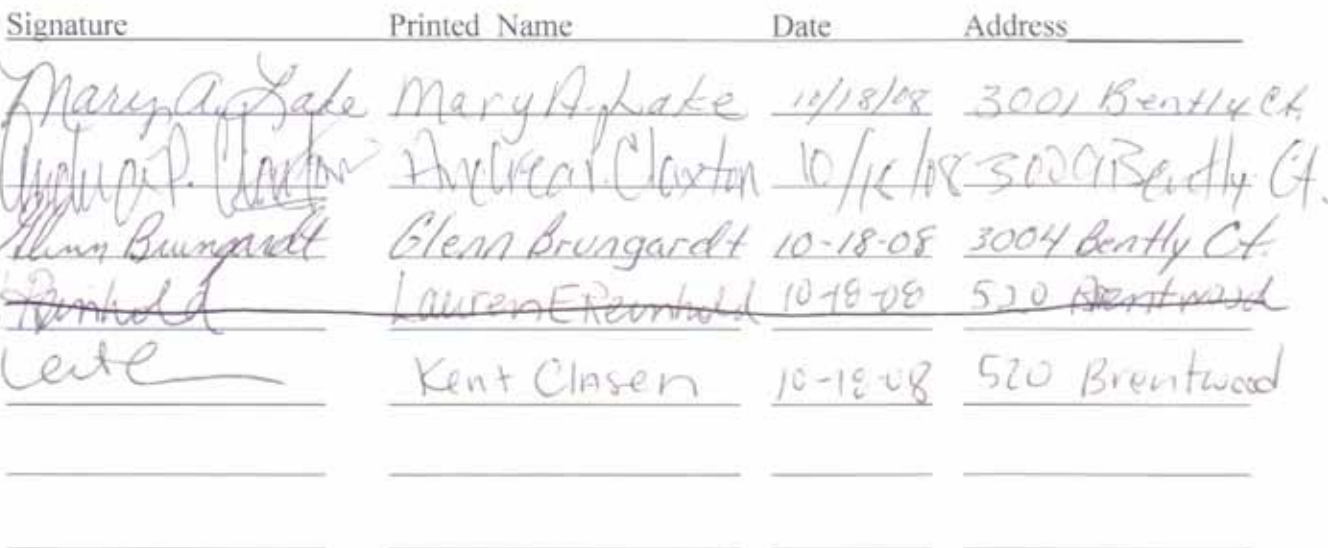 Signature Printed Name Date Address
Mary A. Lake Mary A. Lake 10/18/08 3001 Bently Ct.
Andrea P. Claxton Andrea P. Claxton 10/18/08 3009 Bently Ct.
Glenn Brungardt Glenn Brungardt 10-18-08 3004 Bently Ct.
Reinhold Lauren E Reinhold 10-18-08 520 Brentwood
Kent Clasen 10-18-08 520 Brentwood